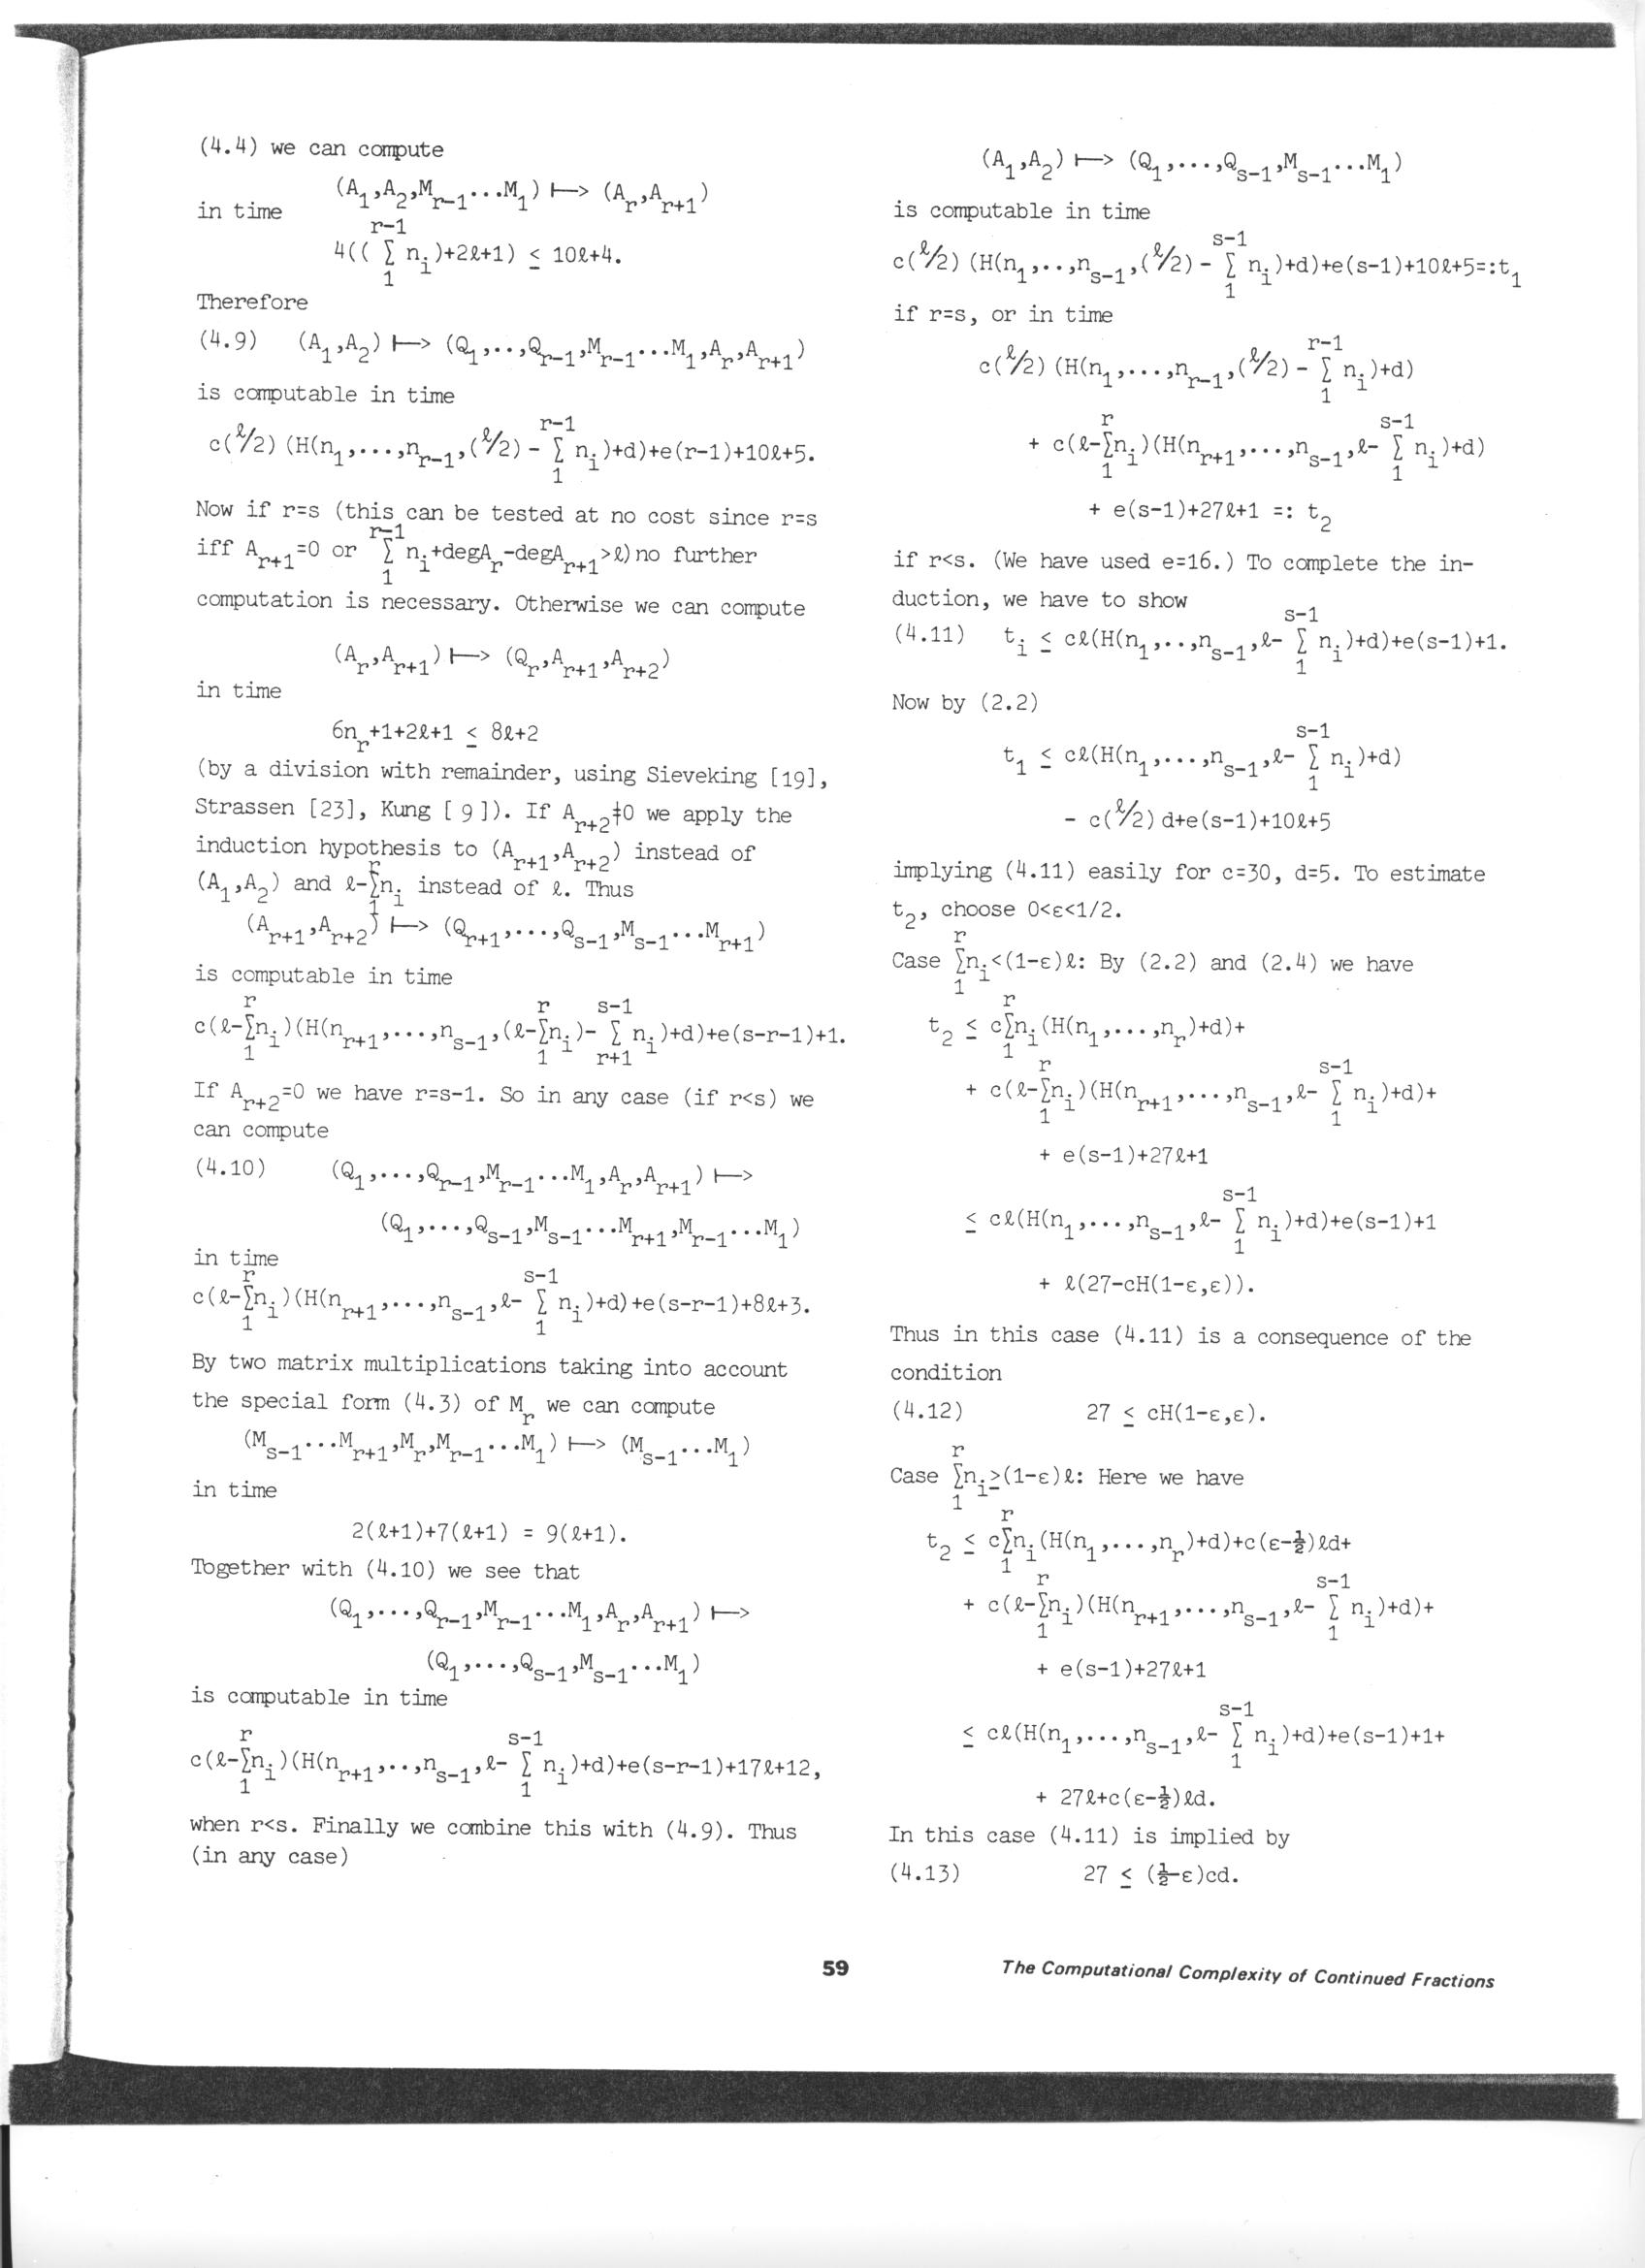 (4.4) we can compute
(A₁,A₂,M_{r-1}...M₁) ↦ (A_r,A_{r+1})
in time
4((∑_{1}^{r-1} n_i)+2ℓ+1) ≤ 10ℓ+4.
Therefore
(4.9) (A₁,A₂) ↦ (Q₁,..,Q_{r-1},M_{r-1}...M₁,A_r,A_{r+1})
is computable in time
c(ℓ/2)(H(n₁,...,n_{r-1},(ℓ/2)-∑_{1}^{r-1} n_i)+d)+e(r-1)+10ℓ+5.
Now if r=s (this can be tested at no cost since r=s
iff A_{r+1}=0 or ∑_{1}^{r-1} n_i+degA_r-degA_{r+1}>ℓ) no further
computation is necessary. Otherwise we can compute
(A_r,A_{r+1}) ↦ (Q_r,A_{r+1},A_{r+2})
in time
6n_r+1+2ℓ+1 ≤ 8ℓ+2
(by a division with remainder, using Sieveking [19],
Strassen [23], Kung [ 9 ]). If A_{r+2}≠0 we apply the
induction hypothesis to (A_{r+1},A_{r+2}) instead of
(A₁,A₂) and ℓ-∑_{1}^{r}n_i instead of ℓ. Thus
(A_{r+1},A_{r+2}) ↦ (Q_{r+1},...,Q_{s-1},M_{s-1}...M_{r+1})
is computable in time
c(ℓ-∑_{1}^{r}n_i)(H(n_{r+1},...,n_{s-1},(ℓ-∑_{1}^{r}n_i)-∑_{r+1}^{s-1} n_i)+d)+e(s-r-1)+1.
If A_{r+2}=0 we have r=s-1. So in any case (if r<s) we
can compute
(4.10) (Q₁,...,Q_{r-1},M_{r-1}...M₁,A_r,A_{r+1}) ↦
(Q₁,...,Q_{s-1},M_{s-1}...M_{r+1},M_{r-1}...M₁)
in time
c(ℓ-∑_{1}^{r}n_i)(H(n_{r+1},...,n_{s-1},ℓ-∑_{1}^{s-1} n_i)+d)+e(s-r-1)+8ℓ+3.
By two matrix multiplications taking into account
the special form (4.3) of M_r we can compute
(M_{s-1}...M_{r+1},M_r,M_{r-1}...M₁) ↦ (M_{s-1}...M₁)
in time
2(ℓ+1)+7(ℓ+1) = 9(ℓ+1).
Together with (4.10) we see that
(Q₁,...,Q_{r-1},M_{r-1}...M₁,A_r,A_{r+1}) ↦
(Q₁,...,Q_{s-1},M_{s-1}...M₁)
is computable in time
c(ℓ-∑_{1}^{r}n_i)(H(n_{r+1},..,n_{s-1},ℓ-∑_{1}^{s-1} n_i)+d)+e(s-r-1)+17ℓ+12,
when r<s. Finally we combine this with (4.9). Thus
(in any case)
(A₁,A₂) ↦ (Q₁,...,Q_{s-1},M_{s-1}...M₁)
is computable in time
c(ℓ/2)(H(n₁,..,n_{s-1},(ℓ/2)-∑_{1}^{s-1} n_i)+d)+e(s-1)+10ℓ+5=:t₁
if r=s, or in time
c(ℓ/2)(H(n₁,...,n_{r-1},(ℓ/2)-∑_{1}^{r-1} n_i)+d)
+ c(ℓ-∑_{1}^{r}n_i)(H(n_{r+1},...,n_{s-1},ℓ-∑_{1}^{s-1} n_i)+d)
+ e(s-1)+27ℓ+1 =: t₂
if r<s. (We have used e=16.) To complete the in-
duction, we have to show
(4.11) t_i ≤ cℓ(H(n₁,..,n_{s-1},ℓ-∑_{1}^{s-1} n_i)+d)+e(s-1)+1.
Now by (2.2)
t₁ ≤ cℓ(H(n₁,...,n_{s-1},ℓ-∑_{1}^{s-1} n_i)+d)
- c(ℓ/2)d+e(s-1)+10ℓ+5
implying (4.11) easily for c=30, d=5. To estimate
t₂, choose 0<ε<1/2.
Case ∑_{1}^{r}n_i<(1-ε)ℓ: By (2.2) and (2.4) we have
t₂ ≤ c∑_{1}^{r}n_i(H(n₁,...,n_r)+d)+
+ c(ℓ-∑_{1}^{r}n_i)(H(n_{r+1},...,n_{s-1},ℓ-∑_{1}^{s-1} n_i)+d)+
+ e(s-1)+27ℓ+1
≤ cℓ(H(n₁,...,n_{s-1},ℓ-∑_{1}^{s-1} n_i)+d)+e(s-1)+1
+ ℓ(27-cH(1-ε,ε)).
Thus in this case (4.11) is a consequence of the
condition
(4.12) 27 ≤ cH(1-ε,ε).
Case ∑_{1}^{r}n_i≥(1-ε)ℓ: Here we have
t₂ ≤ c∑_{1}^{r}n_i(H(n₁,...,n_r)+d)+c(ε-½)ℓd+
+ c(ℓ-∑_{1}^{r}n_i)(H(n_{r+1},...,n_{s-1},ℓ-∑_{1}^{s-1} n_i)+d)+
+ e(s-1)+27ℓ+1
≤ cℓ(H(n₁,...,n_{s-1},ℓ-∑_{1}^{s-1} n_i)+d)+e(s-1)+1+
+ 27ℓ+c(ε-½)ℓd.
In this case (4.11) is implied by
(4.13) 27 ≤ (½-ε)cd.
59
The Computational Complexity of Continued Fractions